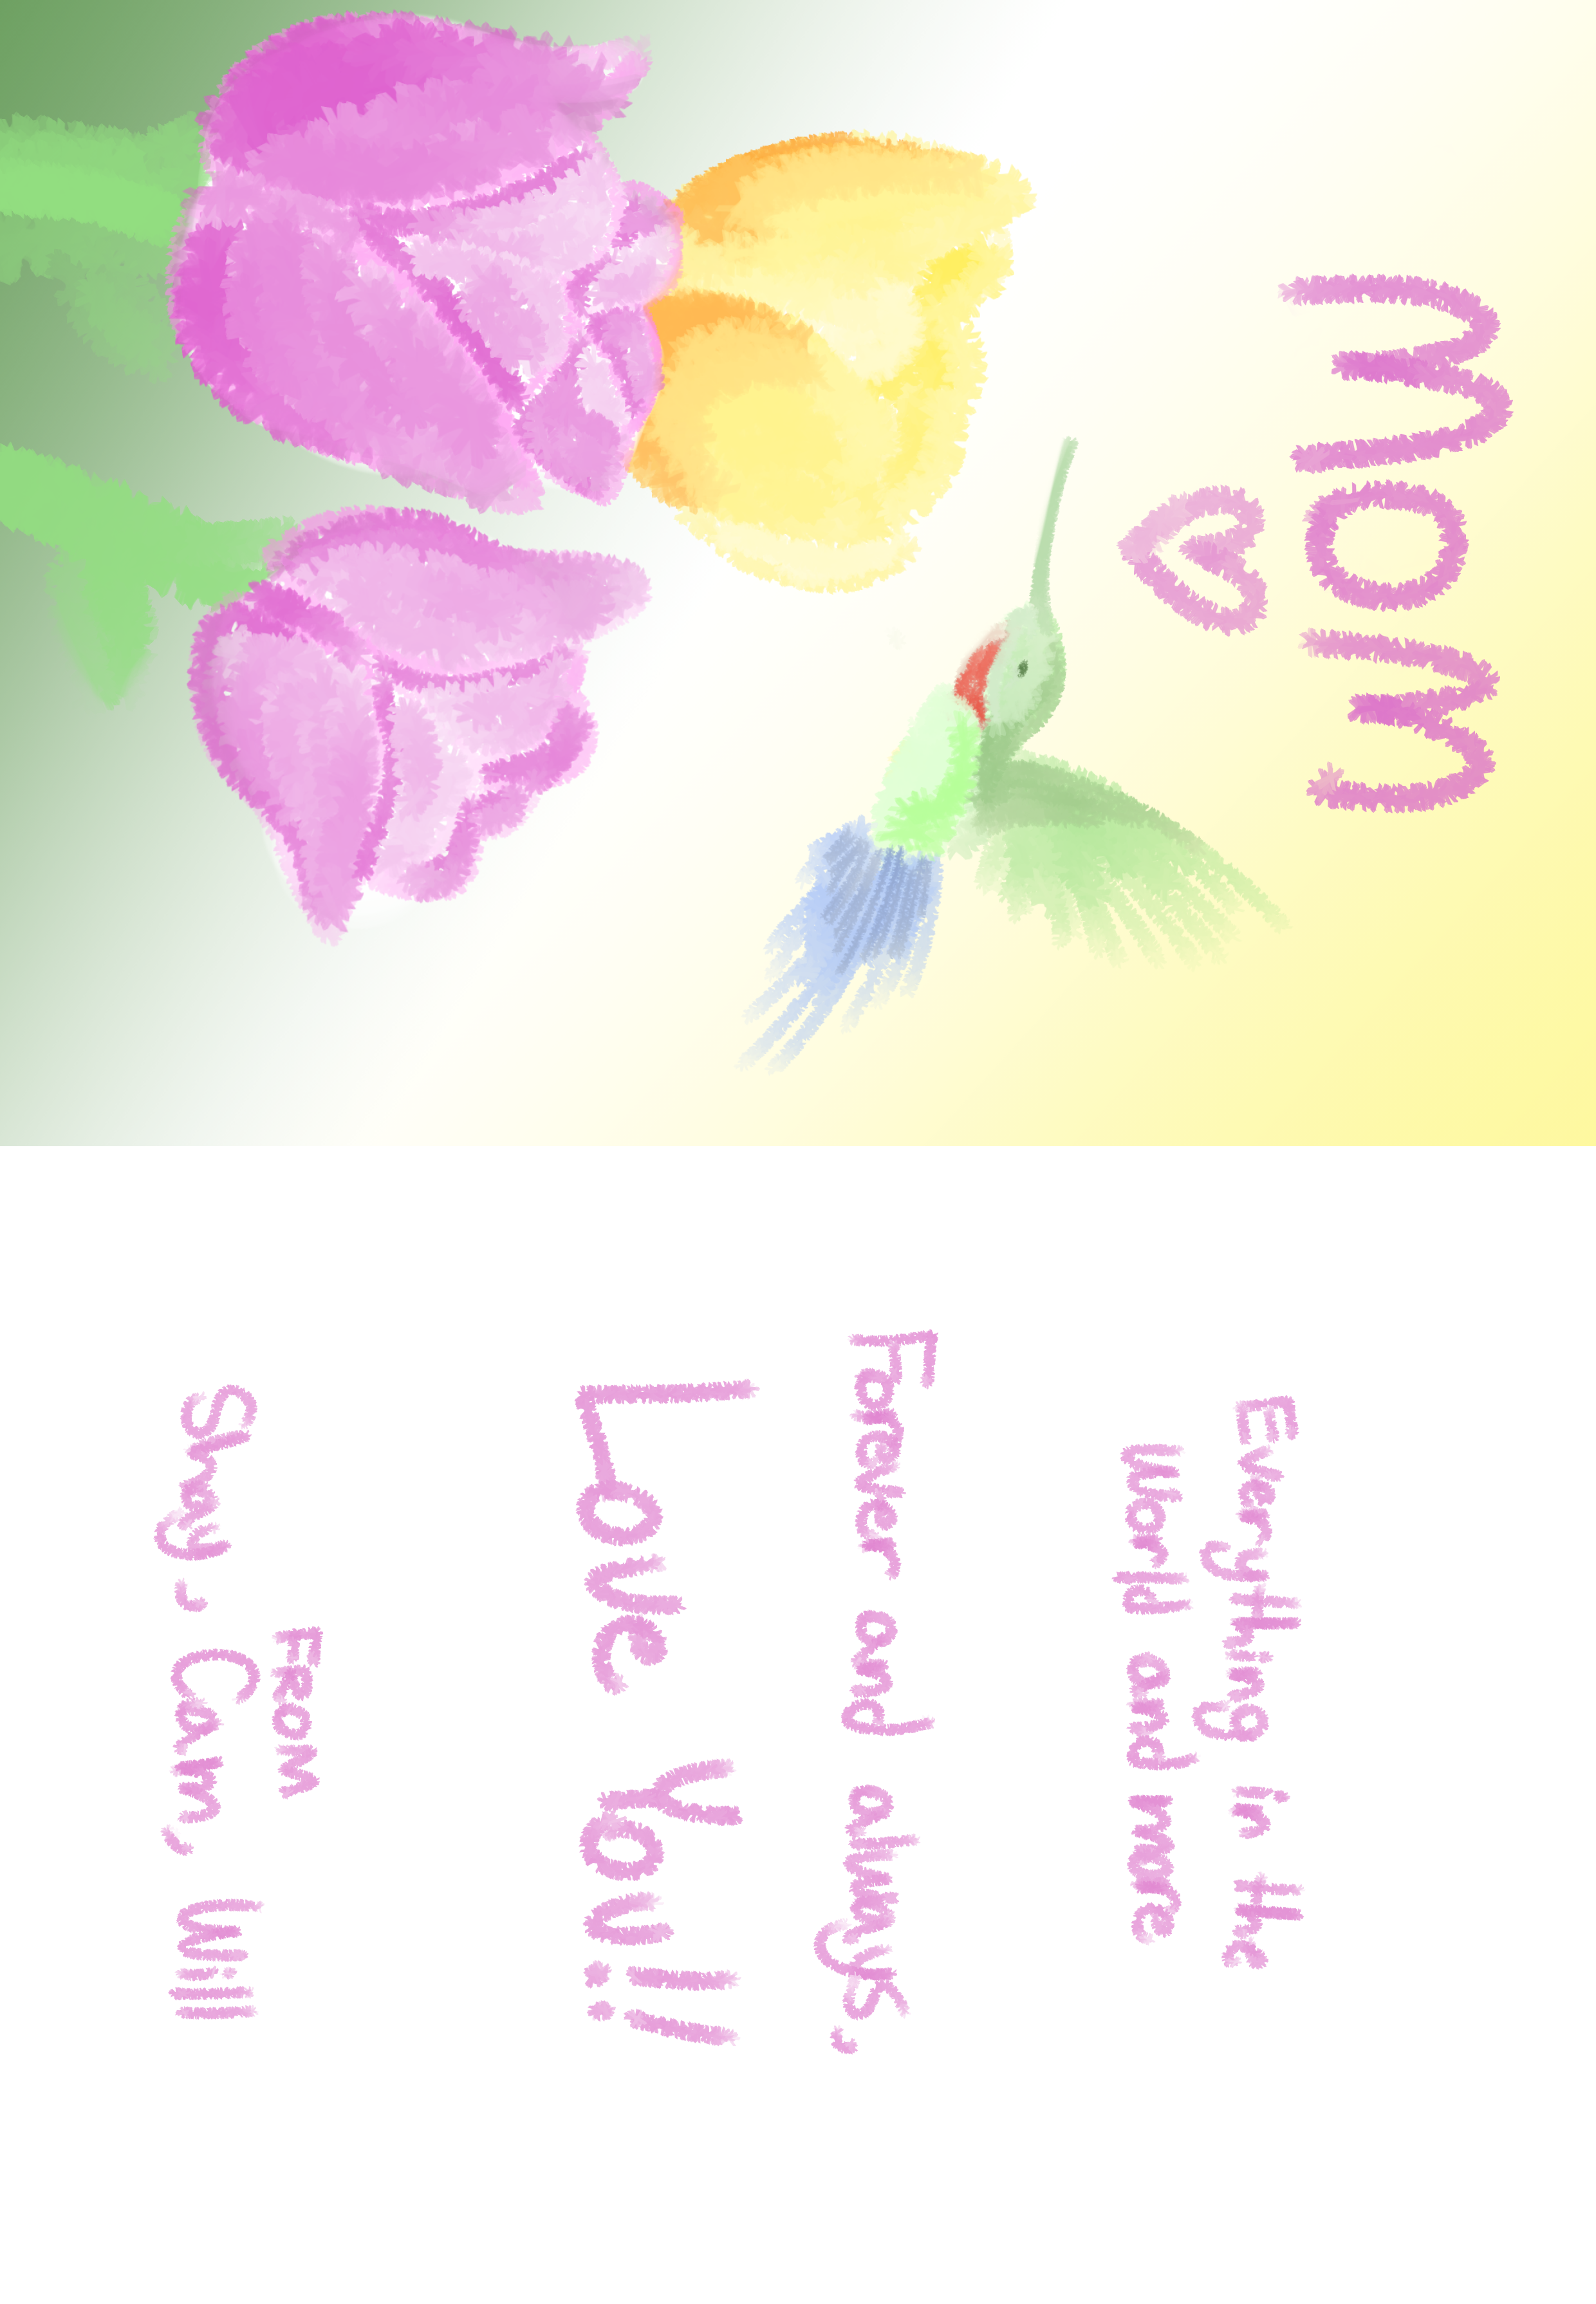 mom
Everything in the
world and more
Forever and always,
Love You!!
FROM
Shay, Cam, Will